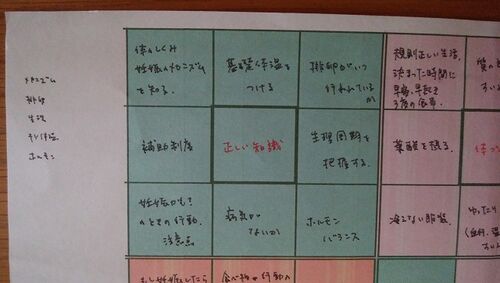 メカニズム
排卵
生理
ホルモン
体のしくみ
妊娠のメカニズム
を知る。
基礎体温を
つける
排卵がいつ
行われているか
規則正しい生活。
決まった時間に
早寝、早起き
3度の食事。
補助制度
正しい知識
生理周期を
把握する。
葉酸を摂る。
妊娠かも?
のときの行動、
注意点
病気が
ないか
ホルモン
バランス
冷えない服装。
ゆったり
もし妊娠したら